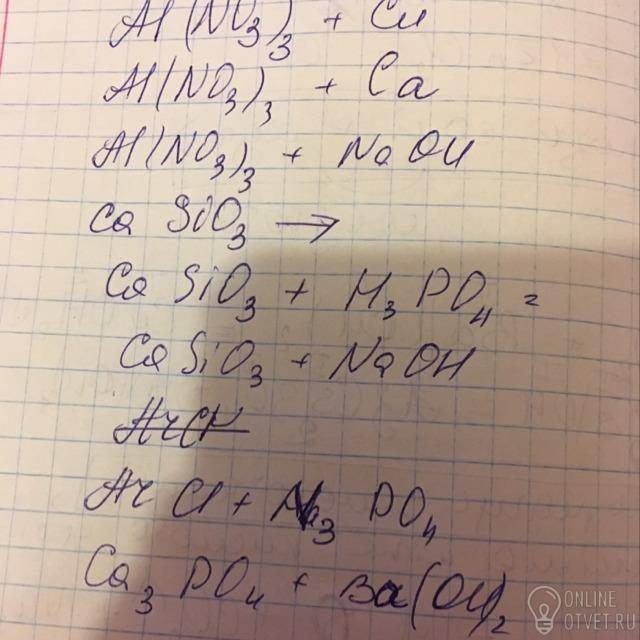 Al(NO3)3 + Cu
Al(NO3)3 + Ca
Al(NO3)3 + NaOH
Ca SiO3 →
Ca SiO3 + H3 PO4 =
Ca SiO3 + NaOH
Ar Cl + Na3 PO4
Ca3 PO4 + Ba(OH)2
ONLINE
OTVET.RU